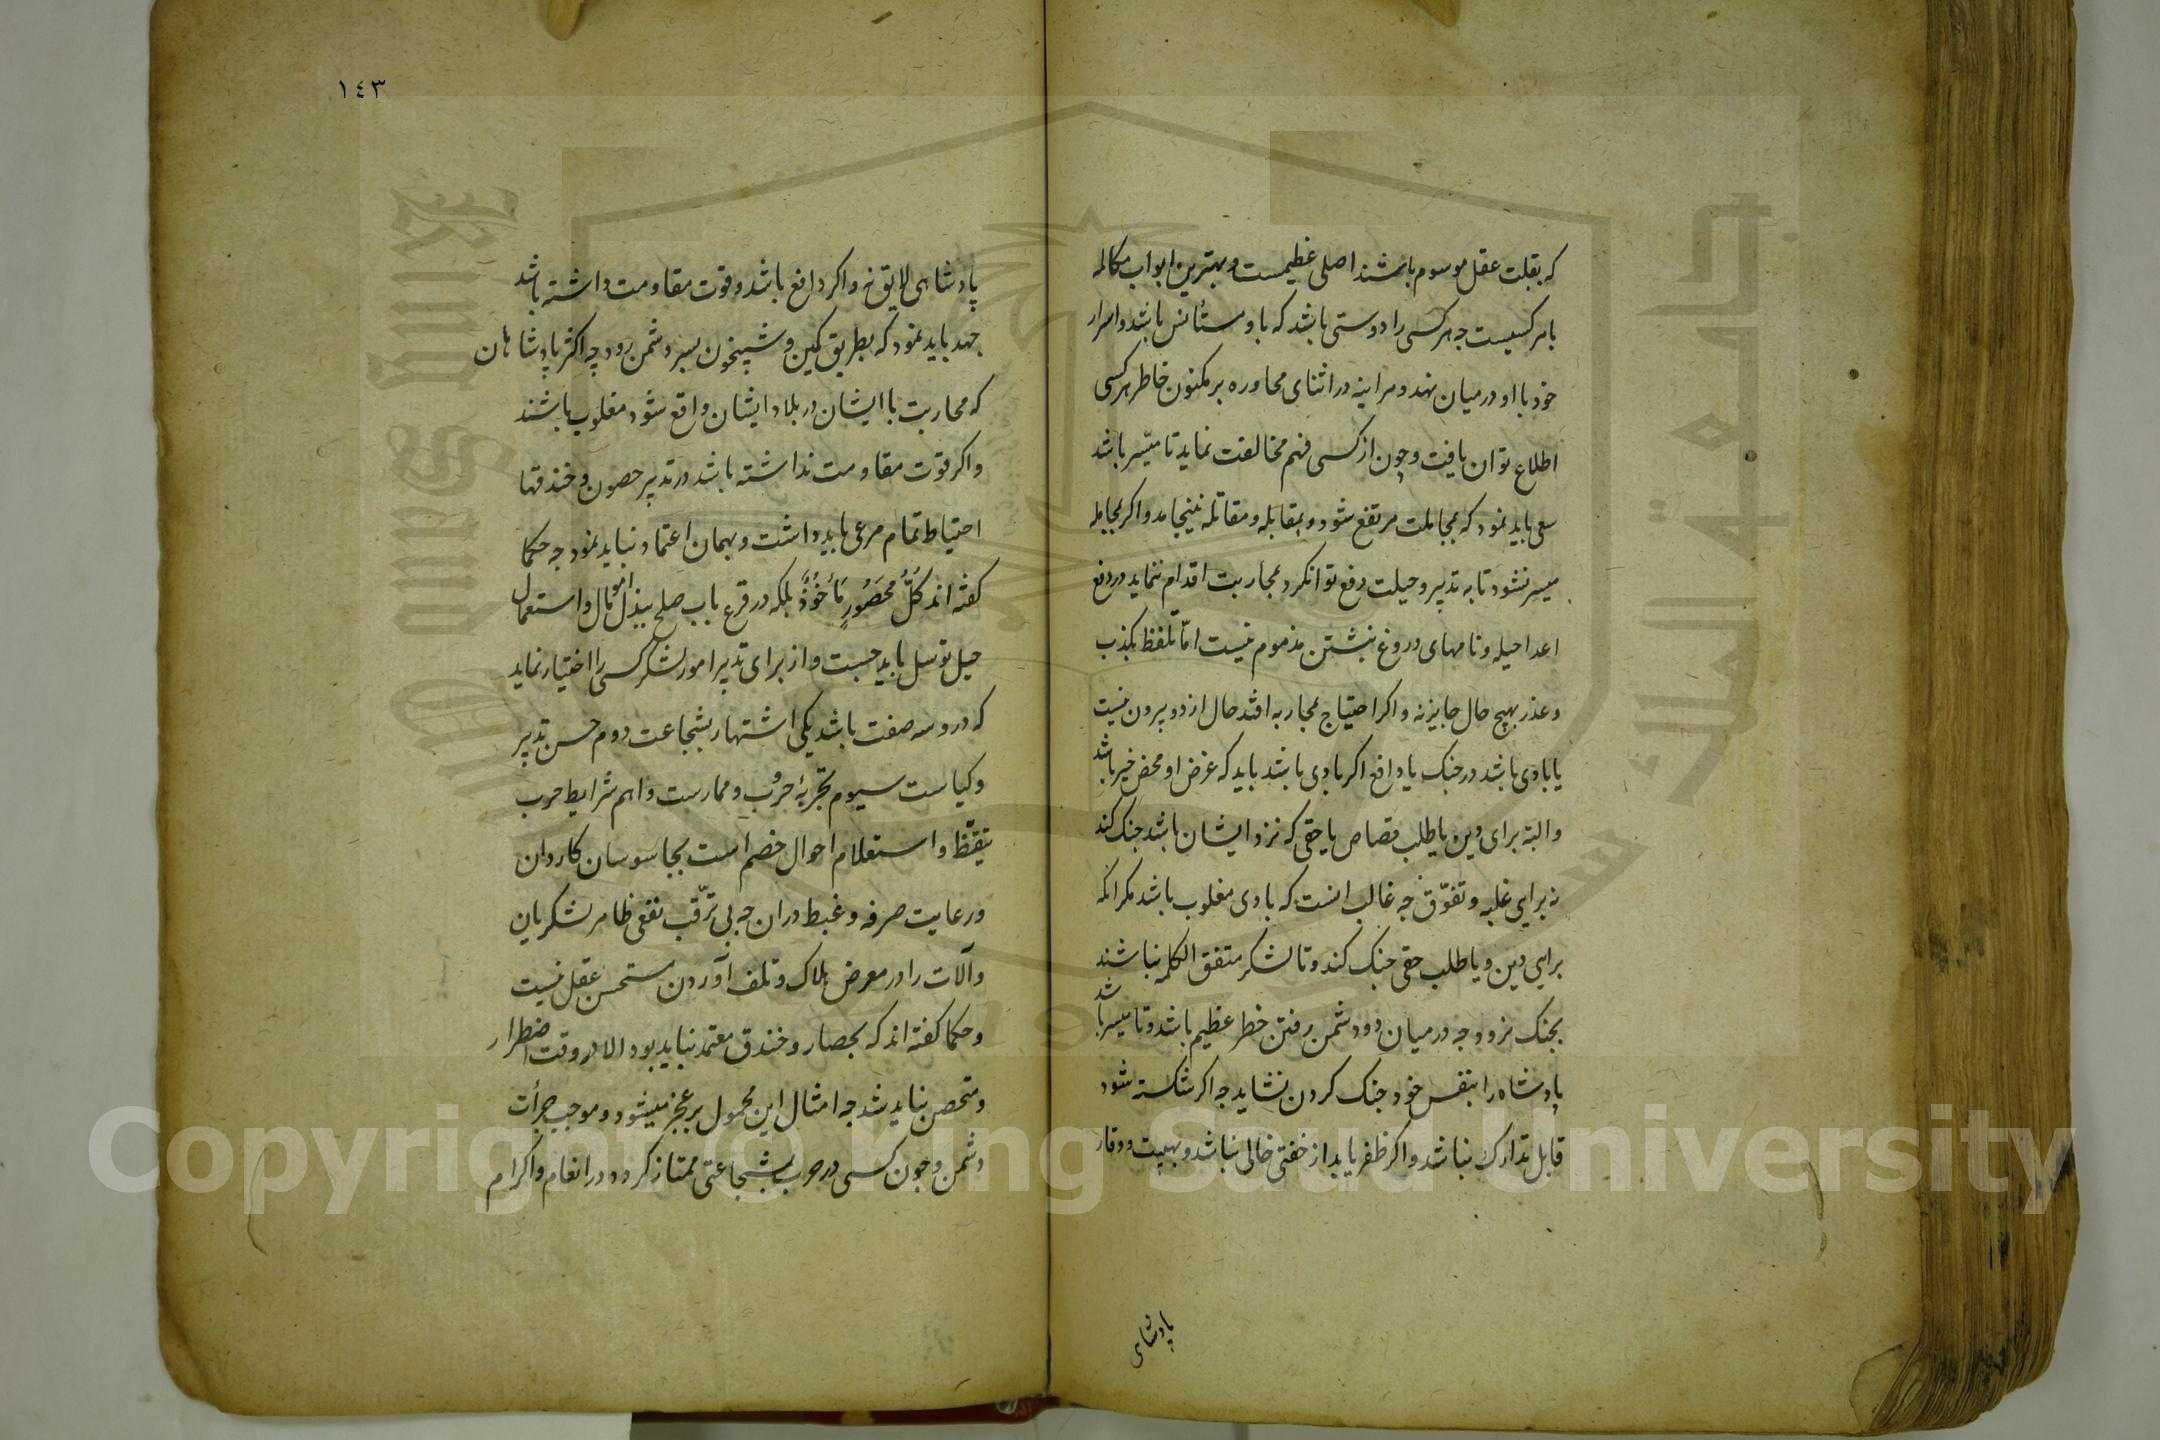 که بقلت عقل موسوم باشند اصلی عظیمست و بهترین ابواب مکالمه
باهر کسیست چه هر کسی را دوستی باشد که با و مستأنس باشد و اسرار
خود با او در میان نهد و هراینه در اثنای محاوره بر مکنون خاطر هر کسی
اطلاع توان یافت و چون از کسی فهم مخالفت نماید تا میسر باشد
سعی باید نمود که بمجاملت مرتفع شود و بمقابله و مقاتله نینجامد و اکر بمجامله
میسر نشود تا به تدبیر و حیلت دفع توانکرد بمحاربت اقدام ننماید و در دفع
اعدا حیله و نامهای دروغ نبشتن مذموم نیست امّا تلفظ بکذب
و عذر بهیچ حال جایز نه و اکر احتیاج بمحاربه افتد حال از دو بیرون نیست
یا بادی باشد در جنک یا دافع اکر بادی باشد باید که غرض او محض خیر باشد
و البته برای دین یا طلب قصاص یا حقی که نزد ایشان باشد جنک کند
نه برای غلبه و تفوّق چه غالب انست که بادی مغلوب باشد مکر انکه
برای دین و یا طلب حقی جنک کند و تا لشکر متفق الکلمه نباشند
بجنک نرود چه در میان دو دشمن رفتن خطر عظیم باشد و تا میسر باشد
پادشاه را بنفس خود جنک کردن نشاید چه اکر شکسته شود
قابل تدارک نباشد و اکر ظفر یابد از خفتی خالی نباشد و بهیبت و وقار
پادشاهی
١٤٣
پادشاهی لایق نه و اکر دافع باشد و قوت مقاومت داشته باشد
جهد باید نمود که بطریق کمین و شبیخون بسر دشمن رود چه اکثر پادشاهان
که محاربت با ایشان در بلاد ایشان واقع شود مغلوب باشند
و اکر قوّت مقاومت نداشته باشد در تدبیر حصون و خندقها
احتیاط تمام مرعی باید داشت و بهمان اعتماد نباید نمود چه حکما
کفته اند کُلُّ مَحصُورٍ مَأخُوذٌ بلکه در قرع باب صلح ببذل اموال و استعمال
حیل توسل باید جست و از برای تدبیر امور لشکر کسی را اختیار نماید
که درو سه صفت باشد یکی اشتهار بشجاعت دوم حسن تدبیر
و کیاست سیوم تجربهٔ حروب و ممارست و اهم شرایط حرب
تیقظ و استعلام احوال خصم است بجاسوسان کاردان
و رعایت صرفه و غبط دران چه بی ترقّب نفعی ظاهر لشکریان
و آلات را در معرض هلاک و تلف آوردن مستحسن عقل نیست
و حکما کفته اند که بحصار و خندق معتمد نباید بود الا در وقت اضطرار
و متحصن نباید شد چه امثال این محمول بر عجز میشود و موجب جرأت
دشمن و چون کسی در حرب بشجاعتی ممتاز کردد در انعام و اکرام
Copyright © King Saud University